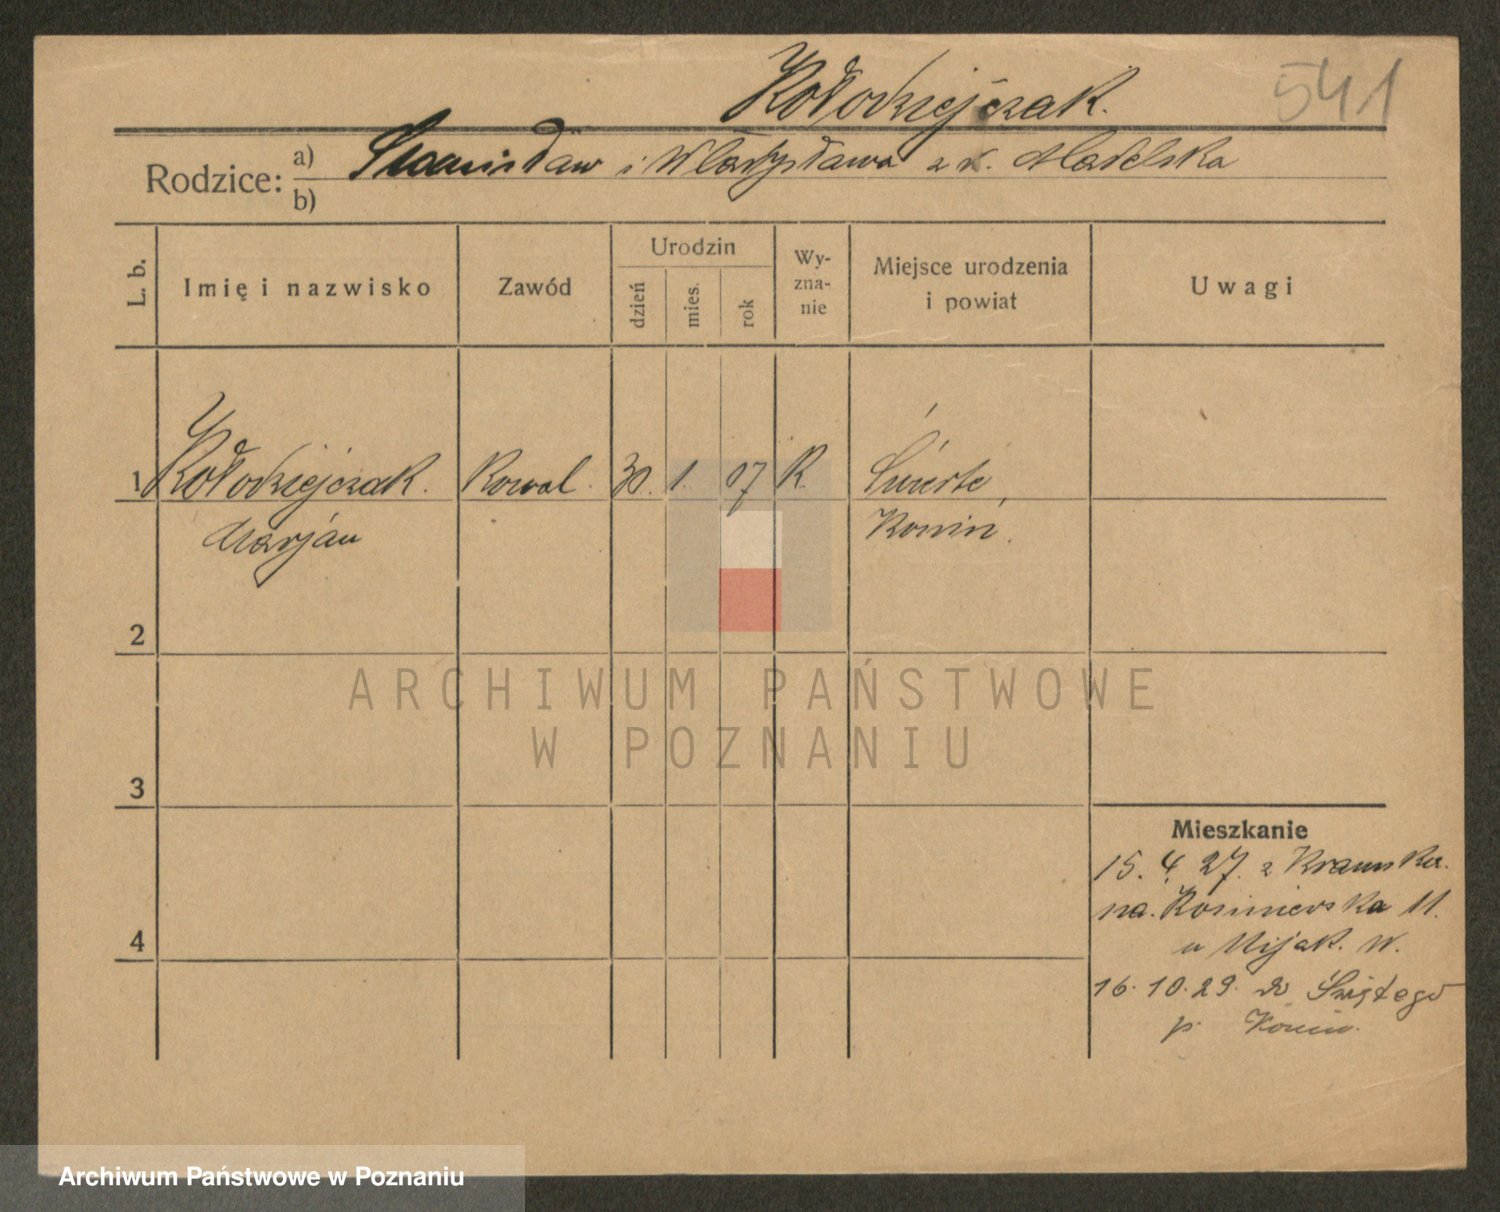 Kołodziejczak.
541
Rodzice: a) Stanisław i Władysława z d. Madelska
b)
L. b.
Imię i nazwisko
Zawód
Urodzin
dzień
mies.
rok
Wy-
zna-
nie
Miejsce urodzenia
i powiat
Uwagi
1 Kołodziejczak. Kowal. 30. 1. 07 R.
Marjan Konin.
2
ARCHIWUM PAŃSTWOWE
W POZNANIU
3
Mieszkanie
15. 4. 27. z
na. 11.
u W.
4
16. 10. 29. do Świętego
p. Konin.
Archiwum Państwowe w Poznaniu